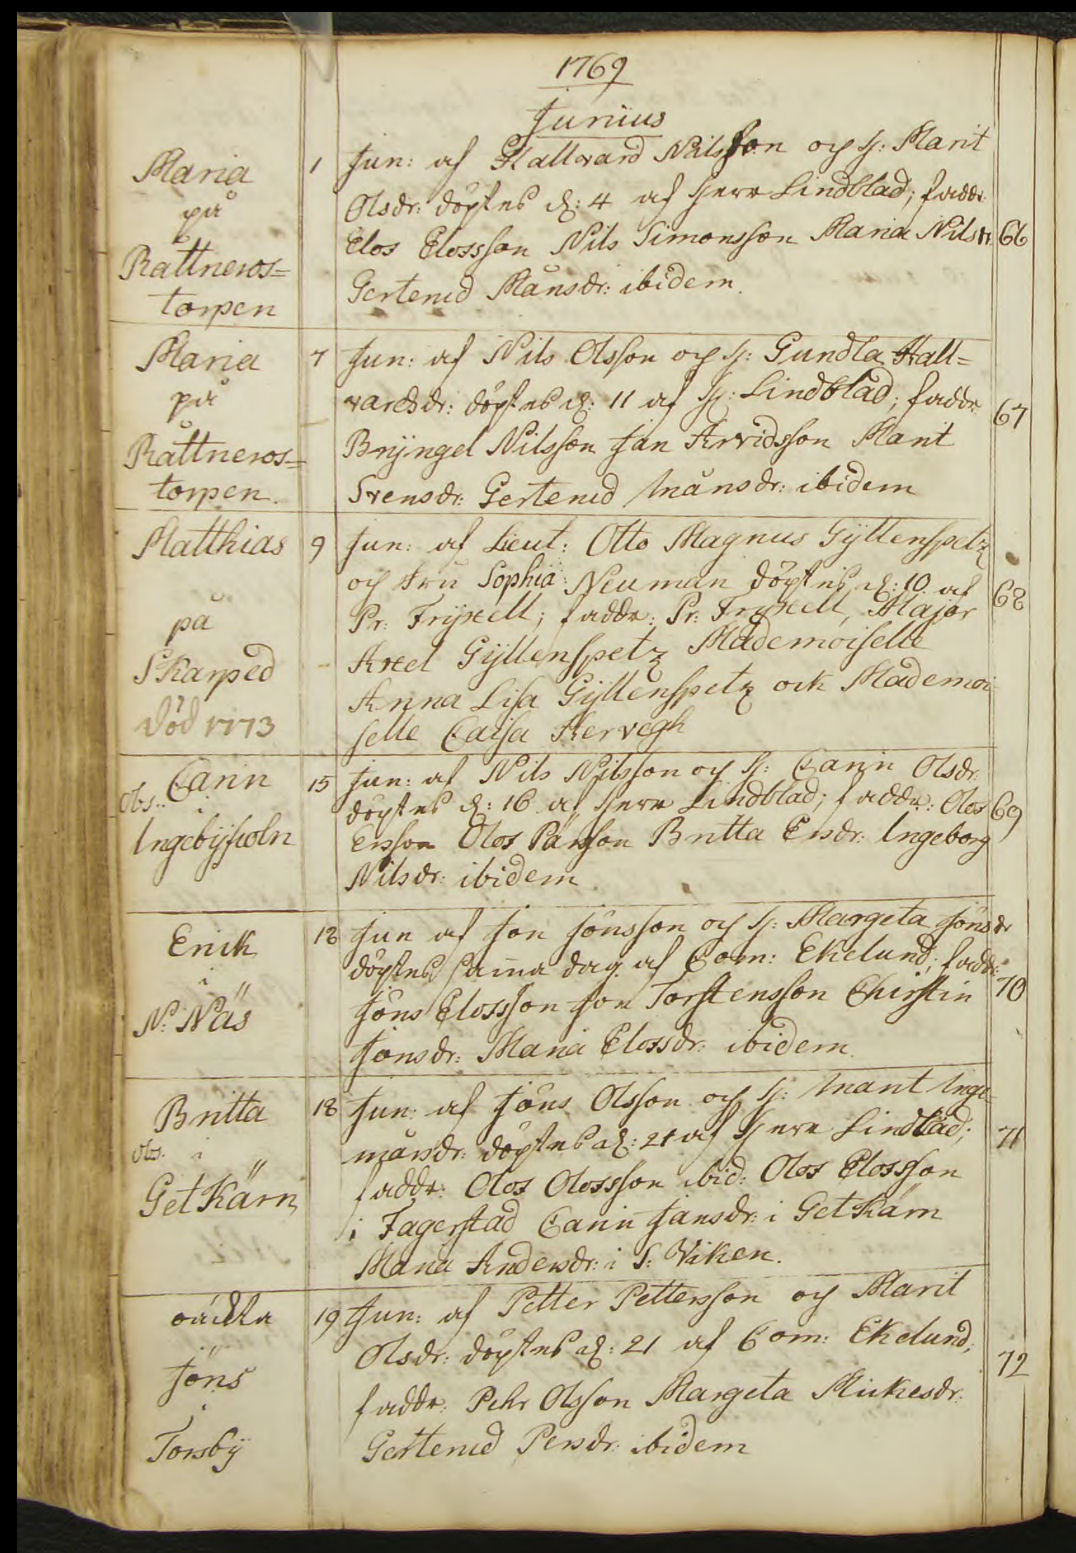 1769
Junius
Maria
på
Rattneros=
torpen
1 Jun: af Hallvard Nilsson och h: Marit
Olsdr: döptes d: 4 af Herr Lindblad; faddr:
Elof Elofsson Nils Simonsson Maria Nilsdr
Gertrud Månsdr: ibidem.
66
Maria
på
Råttneros=
torpen.
7 Jun: af Nils Olsson och h: Gundla Hall=
vardsdr: döptes d: 11 af H: Lindblad; faddr
Bryngel Nilsson Jan Arvidsson Marit
Svensdr: Gertrud Månsdr: ibidem
67
Matthias
på
Skarped
död 1773
9 Jun: af Lieut: Otto Magnus Gyllenspetz
och Fru Sophia Neuman döptes d: 10 af
Pr: Fryxell; faddr: Pr: Fryxell, Major
Axel Gyllenspetz Mademoiselle
Anna Lisa Gyllenspetz och Mademoi
selle Caisa Hervegh
68
Obs.. Carin
i
Ingebyscoln
15 Jun: af Nils Nilsson och h: Carin Olsdr:
döptes d: 16 af Herr Lindblad; faddr: Olof
Ersson Olof Pärsson Britta Ersdr: Ingeborg
Nilsdr: ibidem.
69
Erick
i
N: Näs
18 Jun af Jon Jönsson och h: Margeta Jönsdr
döptes sama dag af Com: Ekelund; faddr:
Jöns Elofsson Jon Torstensson Chirstin
Jonsdr: Maria Elofsdr: ibidem.
70
Britta
Obs. i
Getkärn
18 Jun: af Jöns Olsson och h: Marit Inge
marsdr: döptes d: 21 af Herr Lindblad;
faddr: Olof Olofsson ibid: Olof Elofsson
i Fagerstad Carin Jansdr: i Getkärn
Maria Andersdr: i S: Viken.
71
oäckta
Jöns
i
Torsby
19 Jun: af Petter Pettersson och Marit
Olsdr: döptes d: 21 af Com: Ekelund;
faddr: Pehr Olsson Margeta Mickesdr:
Gertrud Persdr: ibidem
72